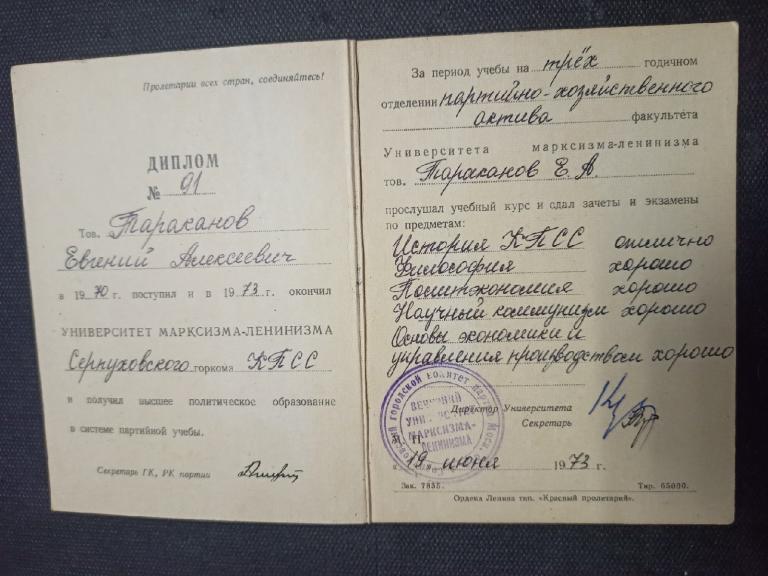 Пролетарии всех стран, соединяйтесь!
ДИПЛОМ
№ 91
Тов. Тараканов
Евгений Алексеевич
в 1970 г. поступил и в 1973 г. окончил
УНИВЕРСИТЕТ МАРКСИЗМА-ЛЕНИНИЗМА
Серпуховского горкома КПСС
и получил высшее политическое образование
в системе партийной учебы.
Секретарь ГК, РК партии
За период учебы на трёх годичном
отделении партийно-хозяйственного
актива факультета
Университета марксизма-ленинизма
тов. Тараканов Е. А.
прослушал учебный курс и сдал зачеты и экзамены
по предметам:
История КПСС отлично
Философия хорошо
Политэкономия хорошо
Научный коммунизм хорошо
Основы экономики и
управления производством хорошо
городской комитет
ВЕЧЕРНИЙ
УНИВЕРСИТЕТ
МАРКСИЗМА-
ЛЕНИНИЗМА
Директор Университета
Секретарь
М. П.
19 июня 1973 г.
Зак. 7835. Тир. 65000.
Ордена Ленина тип. «Красный пролетарий».